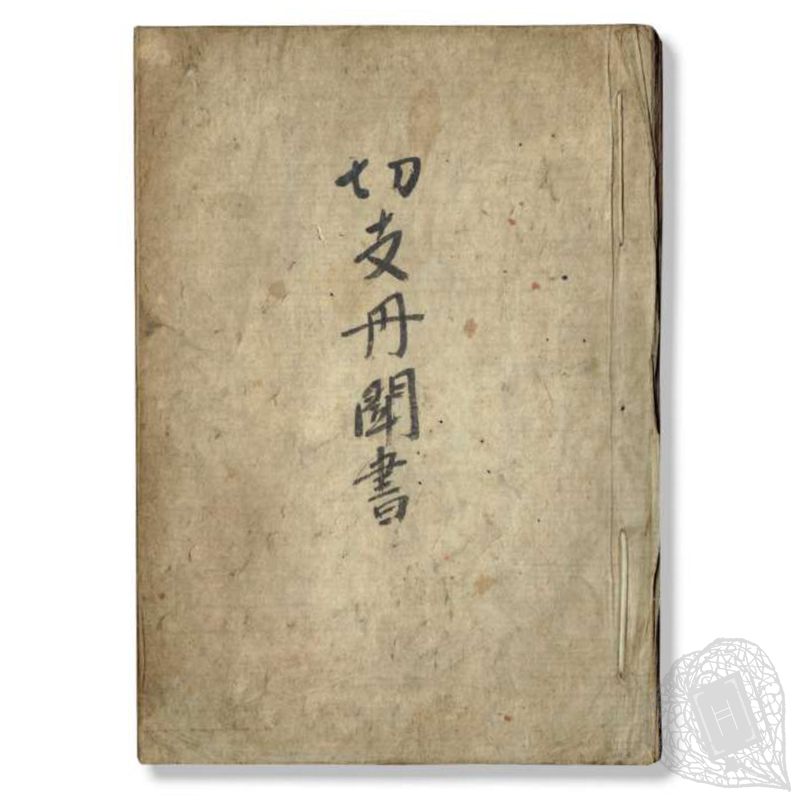 切支丹聞書
H